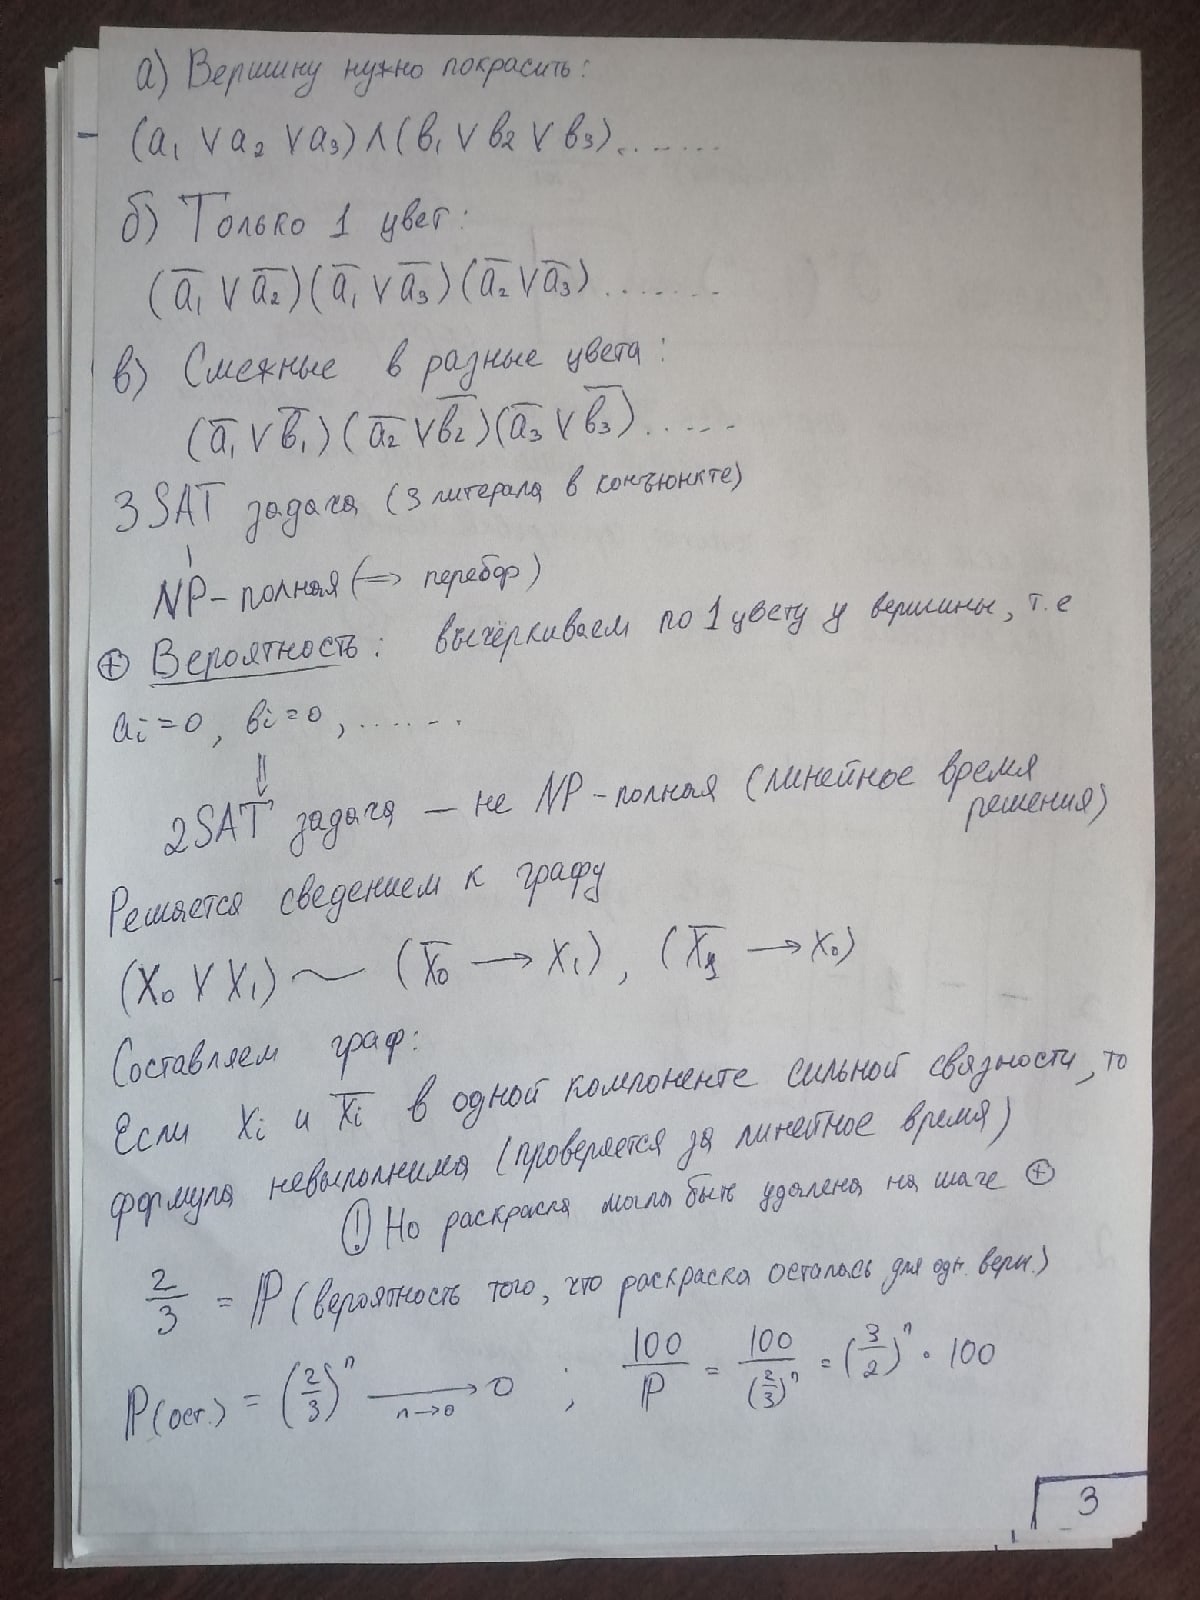 а) Вершину нужно покрасить:
(a₁ ∨ a₂ ∨ a₃) ∧ (в₁ ∨ в₂ ∨ в₃). . . . . . .
б) Только 1 цвет:
(a̅₁ ∨ a̅₂)(a̅₁ ∨ a̅₃)(a̅₂ ∨ a̅₃) . . . . . . .
в) Смежные в разные цвета:
(a̅₁ ∨ в̅₁)(a̅₂ ∨ в̅₂)(a̅₃ ∨ в̅₃) . . . . .
3SAT задача (3 литерала в конъюнкте)
NP-полная (=> перебор)
⊕ Вероятность: вычёркиваем по 1 цвету у вершины, т.е
aᵢ=0, вᵢ=0, . . . . . .
⇓
2SAT задача — не NP-полная (линейное время
решения)
Решается сведением к графу
(X₀ ∨ X₁) ~ (X̅₀ → X₁), (X̅₁ → X₀)
Составляем граф:
Если Xᵢ и X̅ᵢ в одной компоненте сильной связности, то
формула невыполнима (проверяется за линейное время)
(!) Но раскраска могла быть удалена на шаге ⊕
2/3 = ℙ (вероятность того, что раскраска осталась для одн. верш.)
ℙ(ост.) = (2/3)ⁿ →(n→0) 0 ; 100/ℙ = 100/(2/3)ⁿ = (3/2)ⁿ · 100
3